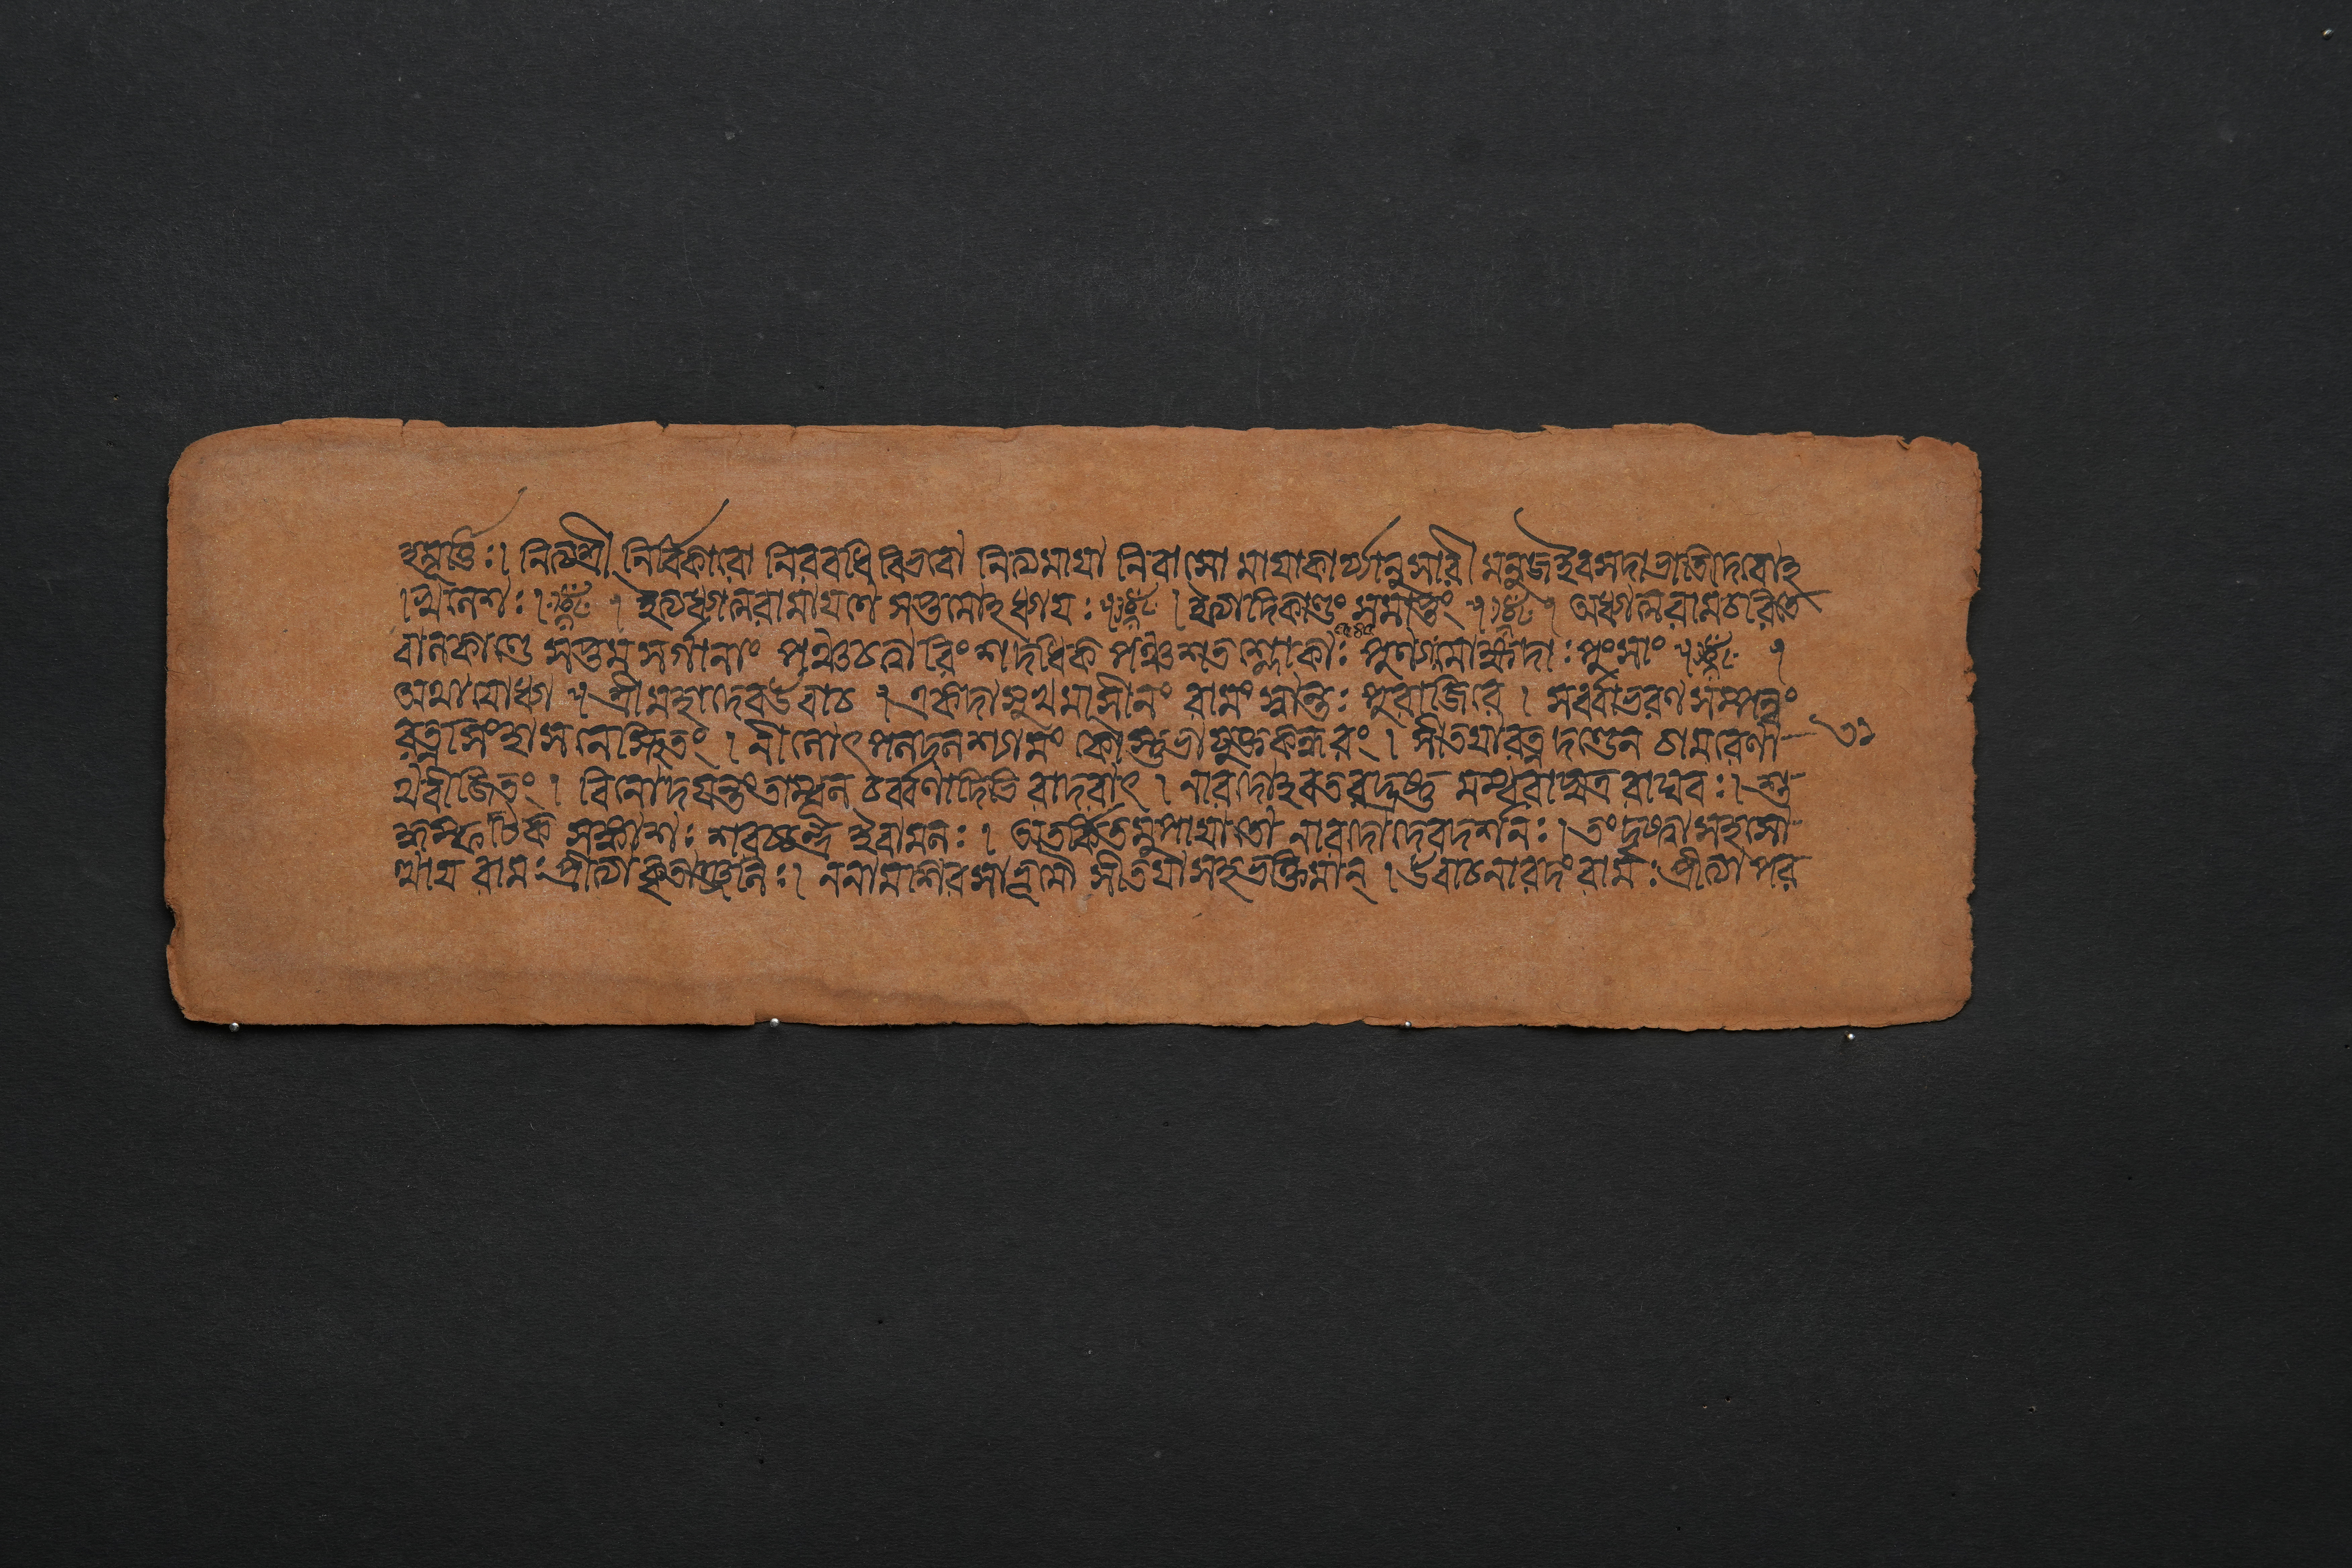 হমূর্ত্তিঃ। নিত্যশ্রী নির্বিকারো নিরবধি বিভবো নিত্যমায়া নিরাসো মায়াকার্য্যানুসারী মনুজইবসদা ভাতি দেবোহ
খিলেশঃ। । ইত্যধ্যাত্মরামায়ণে সপ্তমোহধ্যায়ঃ । ইত্যাদিকাণ্ডং সমাপ্তং । অধ্যাত্মরামচরিতে
বালকাণ্ডে সপ্তমসর্গানাং পঞ্চচত্বারিংশদধিক পঞ্চশতশ্লোকাঃ ৫৪৫ পুংসাং ।
অথাযোধ্যা । শ্রীমহাদেবউবাচ । একদা সুখমাসীনং রামং স্বান্তঃপুরাজিরে । সর্ব্বাভরণসম্পন্নং
রত্নসিংহাসনেস্থিতং । নীলোৎপলদলশ্যামং কৌস্তুভামুক্তকন্ধরং । সীতয়ারত্নদণ্ডেন চামরেণা
৩১
থবীজিতং । বিনোদয়ন্তংতাম্বূলচর্ব্বণাদিভিরাদরাৎ । নারদোহবতরদ্দ্রষ্টুমম্বরাদ্যত্র রাঘবঃ। শু
দ্ধস্ফটিকসঙ্কাশঃ শরচ্চন্দ্র ইবামলঃ । অতর্কিতমুপায়াতো নারদোদেবদর্শনঃ । তংদৃষ্ট্বাসহসো
ত্থায় রামঃপ্রীত্যাকৃতাঞ্জলিঃ । ননামশিরসাভূমৌ সীতয়াসহভক্তিমান্ । উবাচনারদংরামঃপ্রীত্যা পর